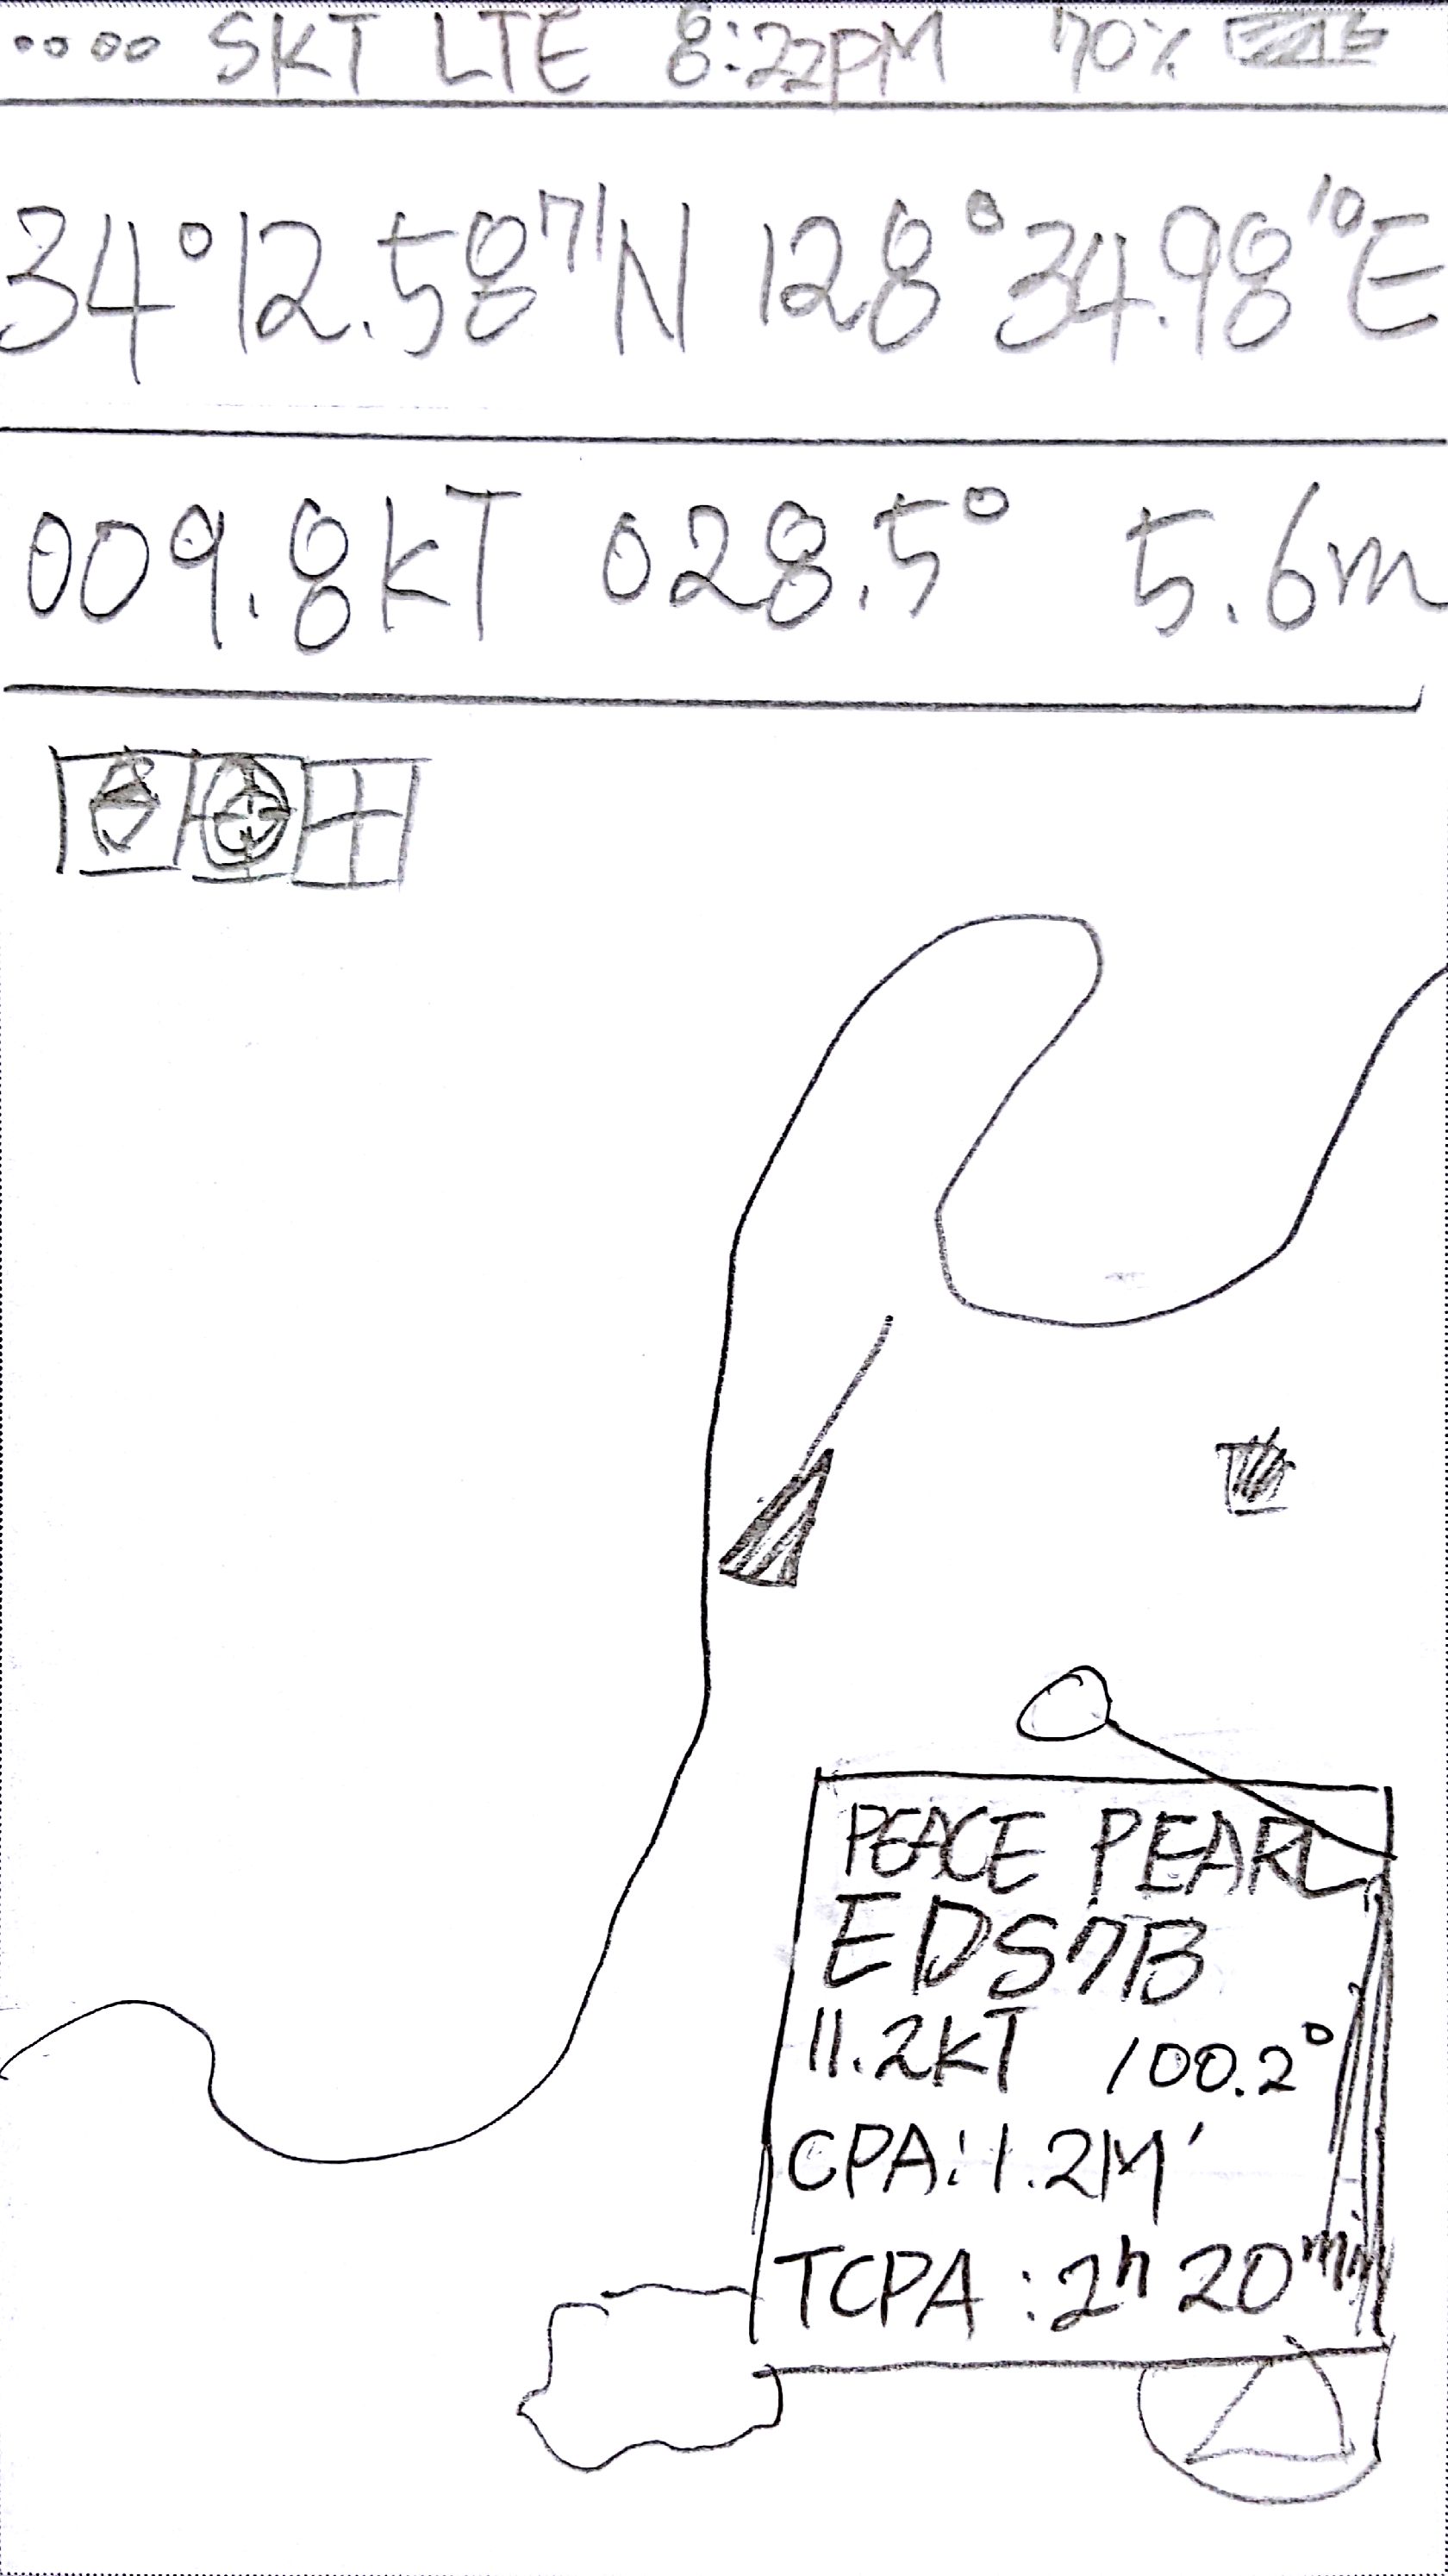 SKT LTE 8:22PM 70%
34°12.5871N 128°34.9810E
009.8KT 028.5° 5.6m
PEACE PEARL
EDS7B
11.2KT 100.2°
CPA:1.2M'
TCPA:2h 20min